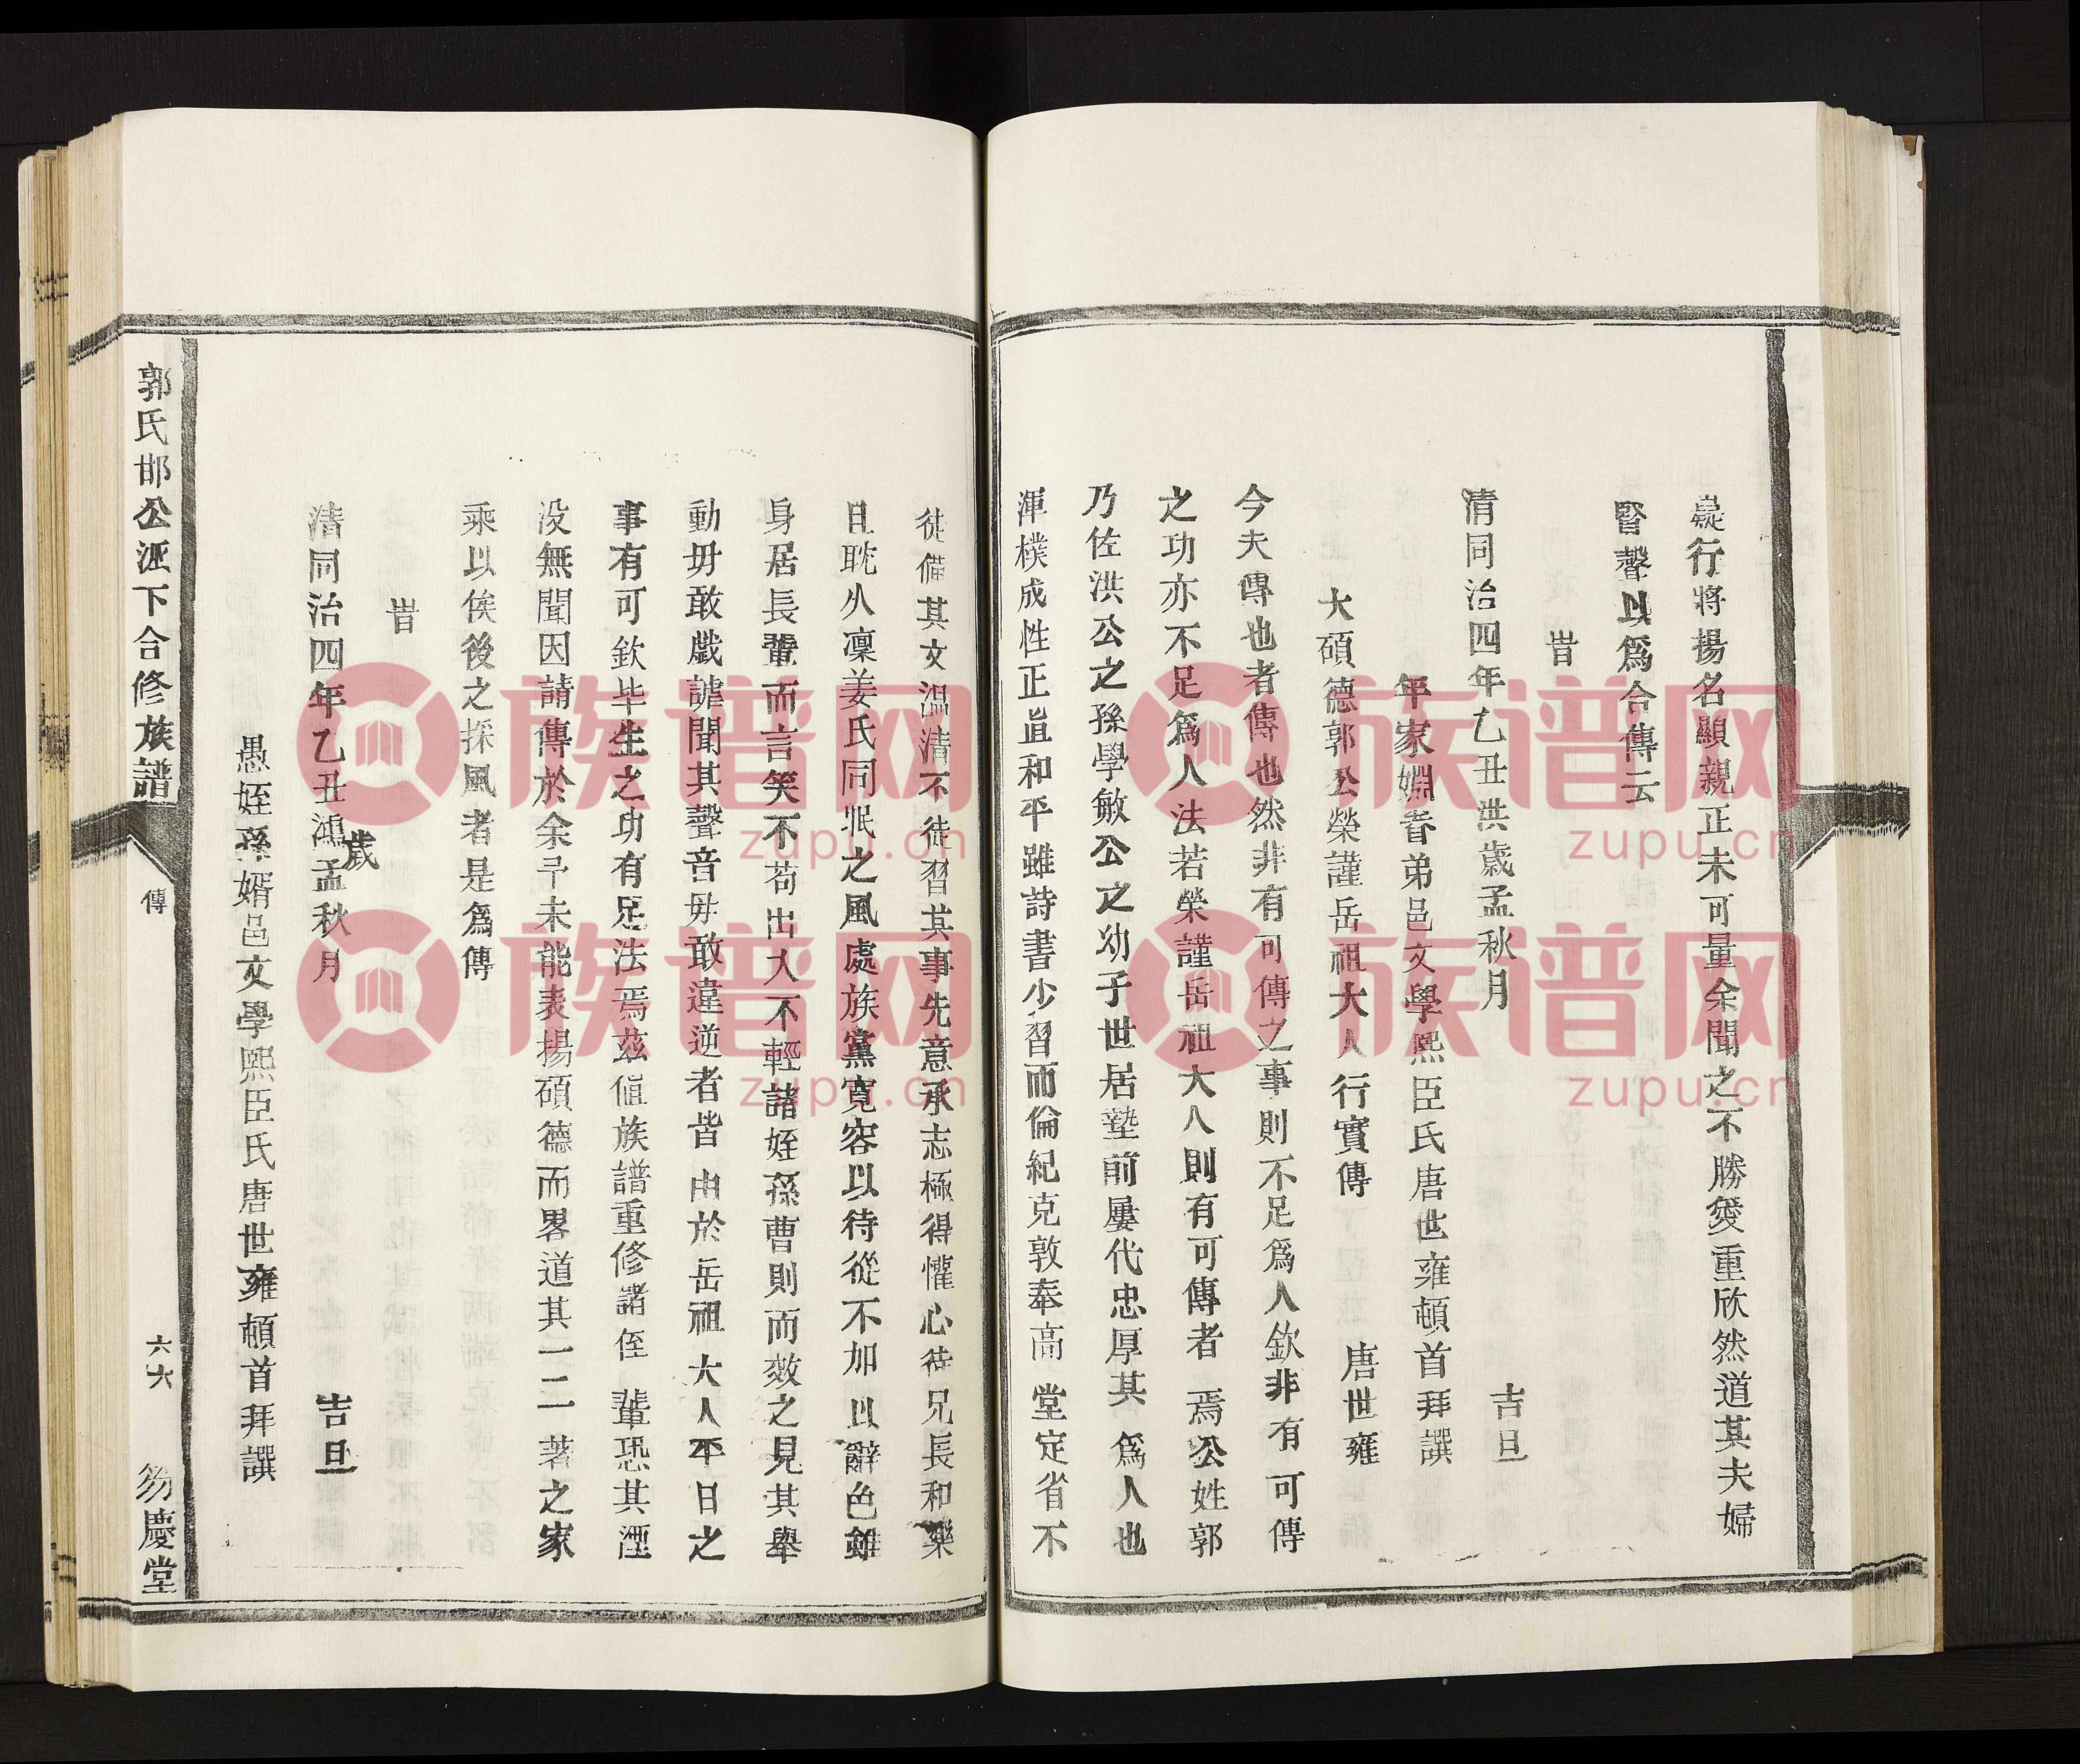 嶷行將揚名顯親正未可量余聞之不勝雙重欣然道其夫婦
醫聲以爲合傳云
旹
清同治四年乙丑洪歲孟秋月 吉旦
年家姻眷弟邑文學熙臣氏唐世雍頓首拜譔
大碩德郭公榮謹岳祖大人行實傳 唐世雍
今夫傳也者傳也然非有可傳之事則不足爲人欽非有可傳
之功亦不足爲人法若榮謹岳祖大人則有可傳者焉公姓郭
乃佐洪公之孫學敏公之幼子世居墊前屢代忠厚其爲人也
渾樸成性正直和平雖詩書少習而倫紀克敦奉高堂定省不
徒備其文温清不徒習其事先意承志極得懽心待兄長和樂
且耽火凛姜氏同眠之風處族黨寬容以待從不加以辭色雖
身居長輩而言笑不苟出入不輕諸姪孫曹則而效之見其舉
動毋敢戲謔聞其聲音毋敢違逆者皆由於岳祖大人平日之
事有可欽毕生之功有足法焉茲值族譜重修諸侄輩恐其湮
没無聞因請傳於余予未能表揚碩德而畧道其一二著之家
乘以俟後之採風者是爲傳
旹
清同治四年乙丑鴻歲孟秋月 吉旦
愚姪孫婿邑文學熙臣氏唐世雍頓首拜譔
郭氏邯公派下合修族譜 傳 六六 笏慶堂
族谱网
zupu.cn
族谱网
zupu.cn
族谱网
zupu.cn
族谱网
zupu.cn